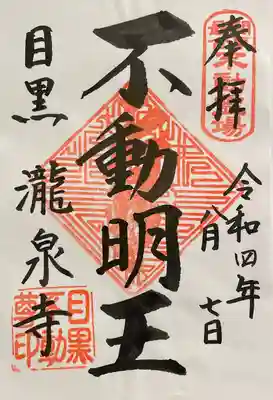 奉拝
令和四年
八月七日
不動明王
目黒
瀧泉寺
目黒
不動
尊印